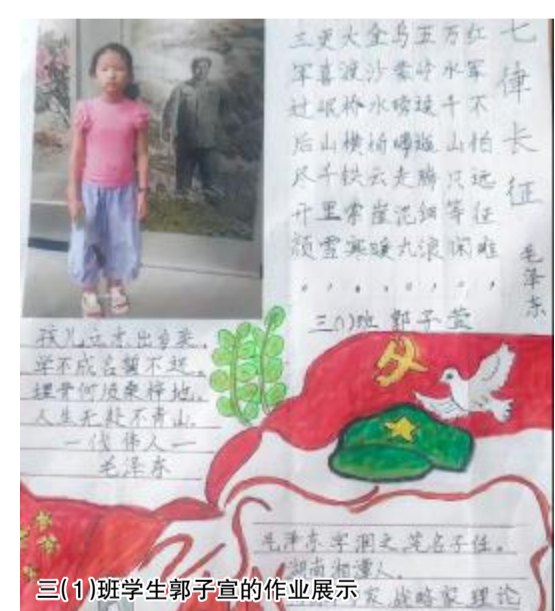 七律长征
毛泽东
红军不怕远征难
万水千山只等闲
五岭逶迤腾细浪
乌蒙磅礴走泥丸
金沙水拍云崖暖
大渡桥横铁索寒
更喜岷山千里雪
三军过后尽开颜
三(1)班 郭子萱
孩儿立志出乡关,
学不成名誓不还。
埋骨何须桑梓地,
人生无处不青山.
一代伟人一
毛泽东
毛泽东字润之,笔名子任。
湖南湘潭人。
家 战略家 理论
三(1)班学生郭子宣的作业展示